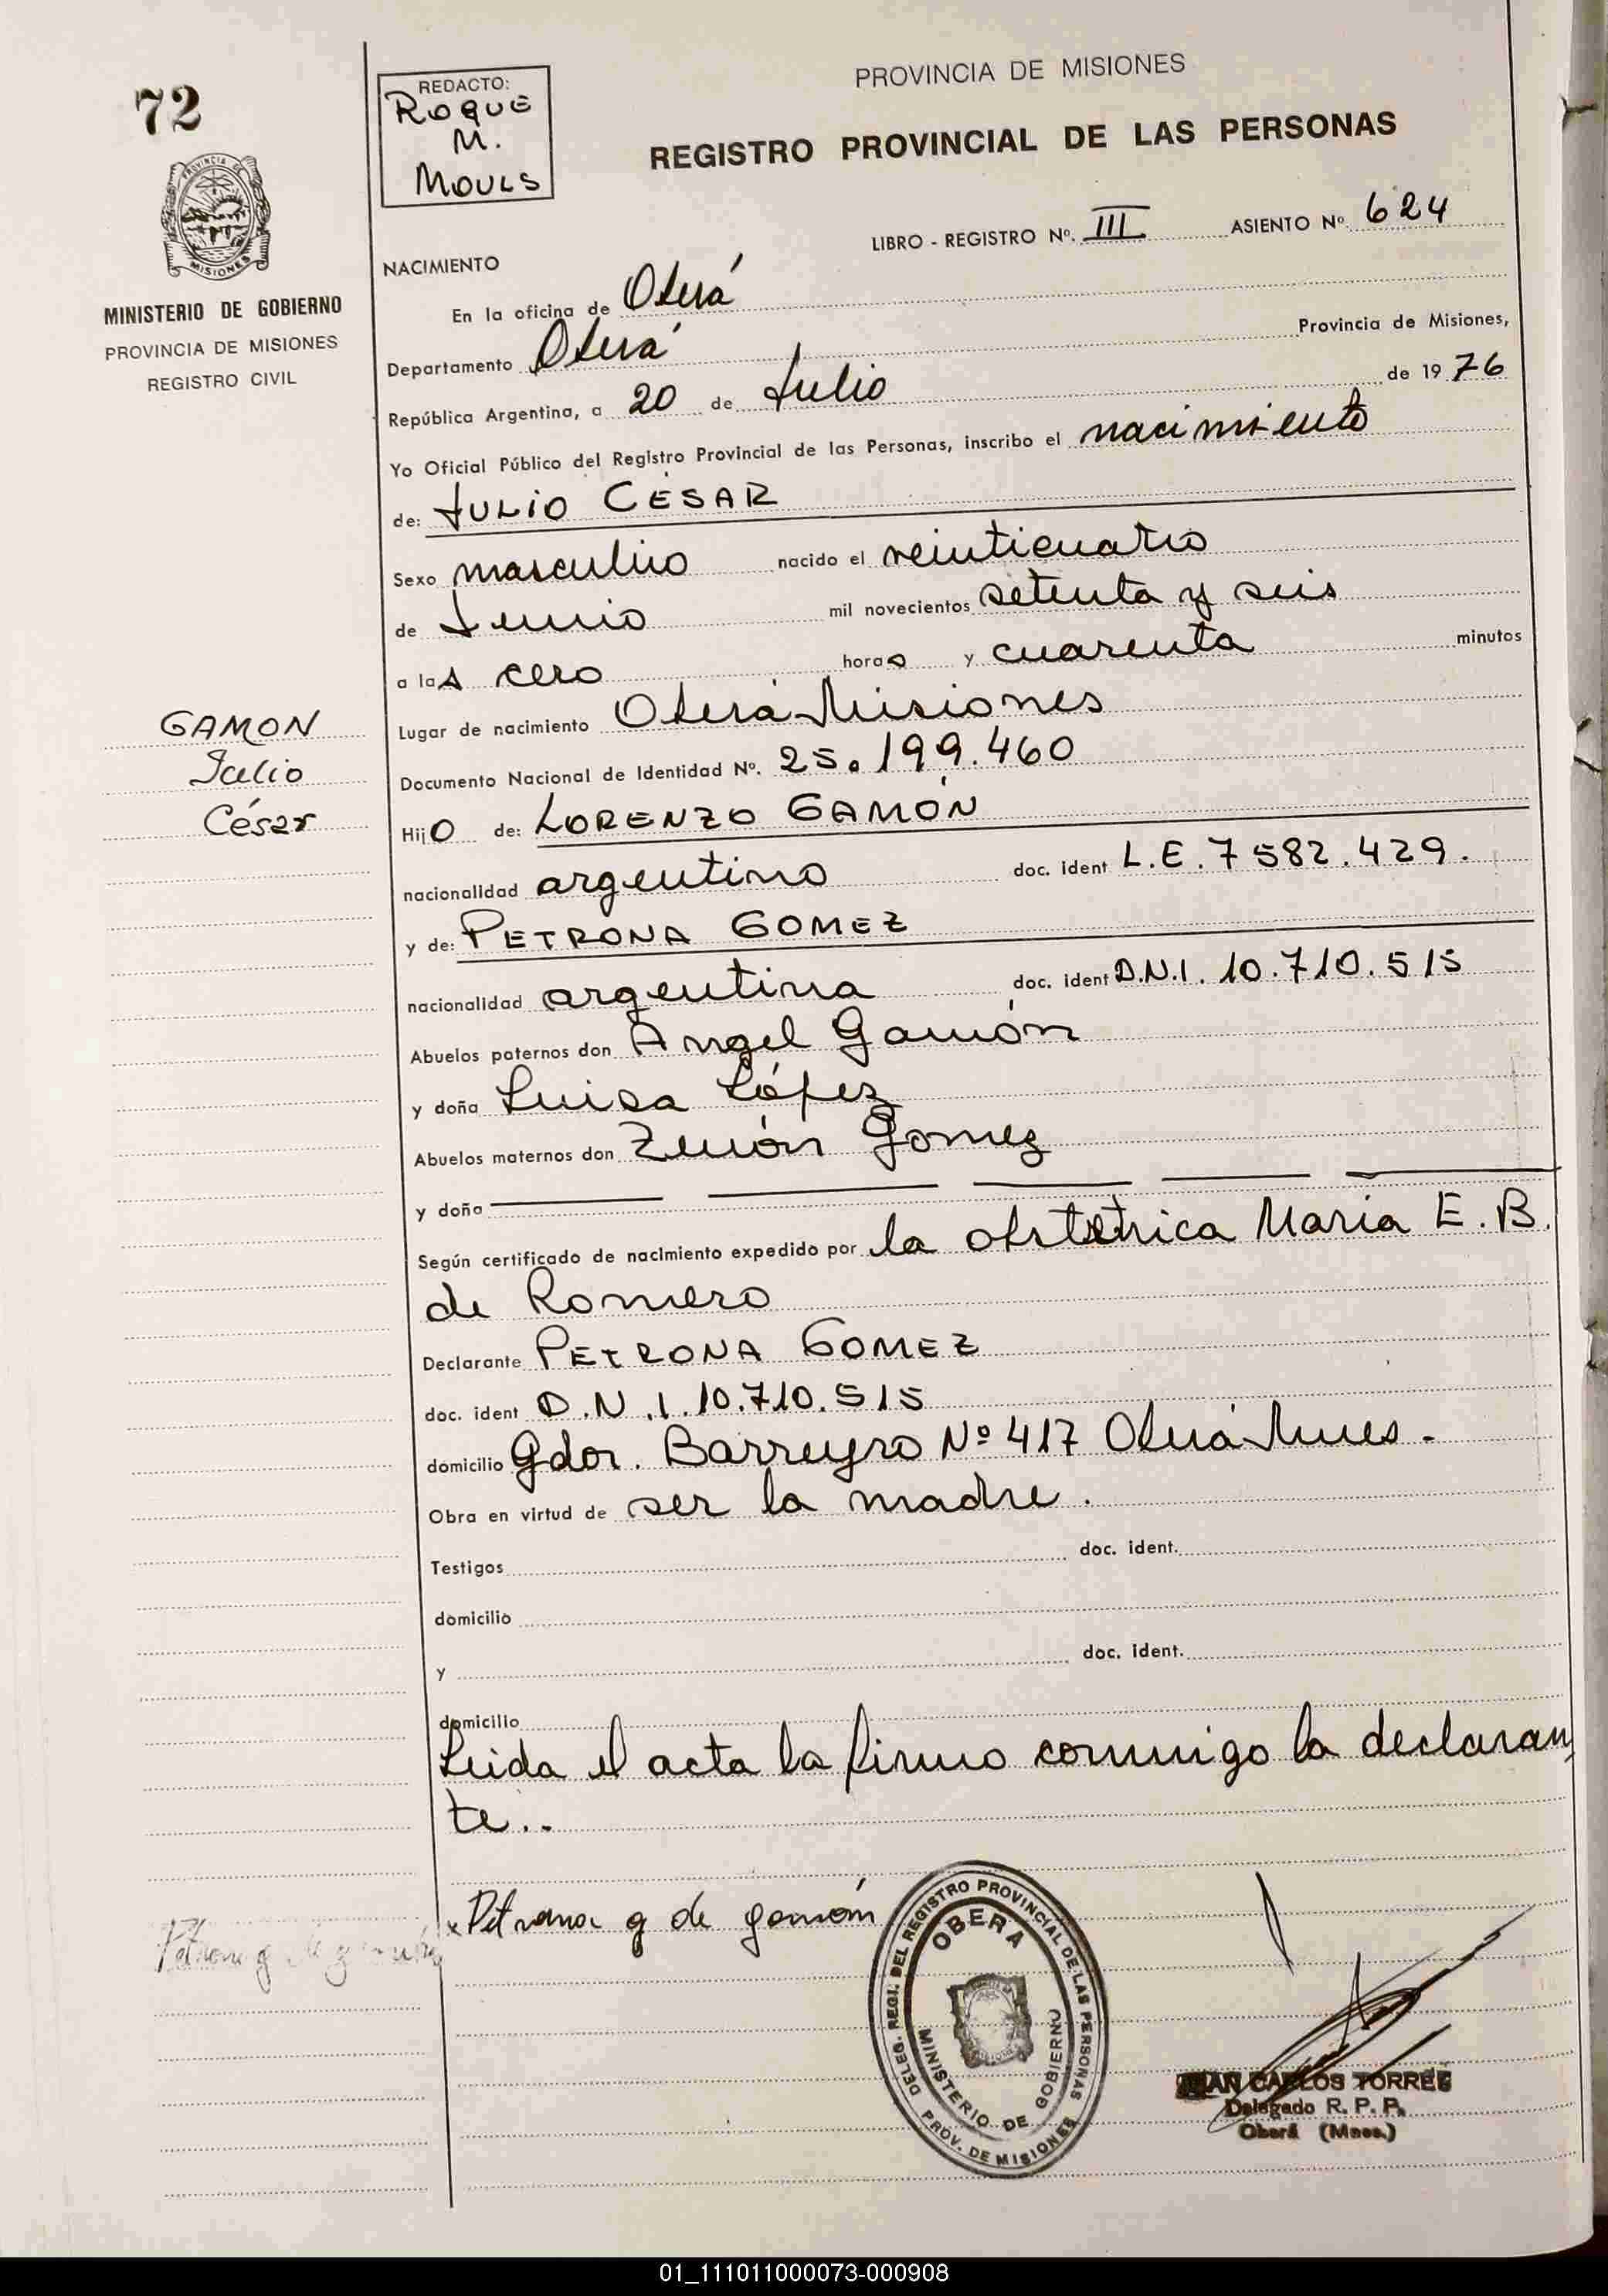 72
REDACTO:
ROQUE
M.
MOULS
PROVINCIA DE MISIONES
REGISTRO PROVINCIAL DE LAS PERSONAS
PROVINCIA DE
MISIONES
MINISTERIO DE GOBIERNO
PROVINCIA DE MISIONES
REGISTRO CIVIL
LIBRO - REGISTRO Nº. III ASIENTO Nº. 624
NACIMIENTO
En la oficina de Oberá
Departamento Oberá Provincia de Misiones,
República Argentina, a 20 de Julio de 1976
Yo Oficial Público del Registro Provincial de las Personas, inscribo el nacimiento
de: JULIO CÉSAR
Sexo masculino nacido el veinticuatro
de Junio mil novecientos setenta y seis
a las cero horas y cuarenta minutos
Lugar de nacimiento Oberá Misiones
Documento Nacional de Identidad Nº. 25.199.460
GAMON
Julio
César
Hijo de: LORENZO GAMÓN
nacionalidad argentino doc. ident L.E. 7582.429.
y de: PETRONA GOMEZ
nacionalidad argentina doc. ident D.N.I. 10.710.515
Abuelos paternos don Angel Gamón
y doña Luisa López
Abuelos maternos don Zenón Gomez
y doña
Según certificado de nacimiento expedido por la obstetrica Maria E. B.
de Romero
Declarante PETRONA GOMEZ
doc. ident D.N.I. 10.710.515
domicilio Gdor. Barreyro Nº 417 Oberá Mnes.
Obra en virtud de ser la madre.
Testigos doc. ident.
domicilio
y doc. ident.
domicilio
Leida el acta la firmo conmigo la declaran
te..
x Petrona g de gamón
DELEG. REGI. DEL REGISTRO PROVINCIAL DE LAS PERSONAS
OBERA
MINISTERIO DE GOBIERNO
PROV. DE MISIONES
JUAN CARLOS TORRES
Delegado R. P. P.
Oberá (Mnes.)
01_111011000073-000908